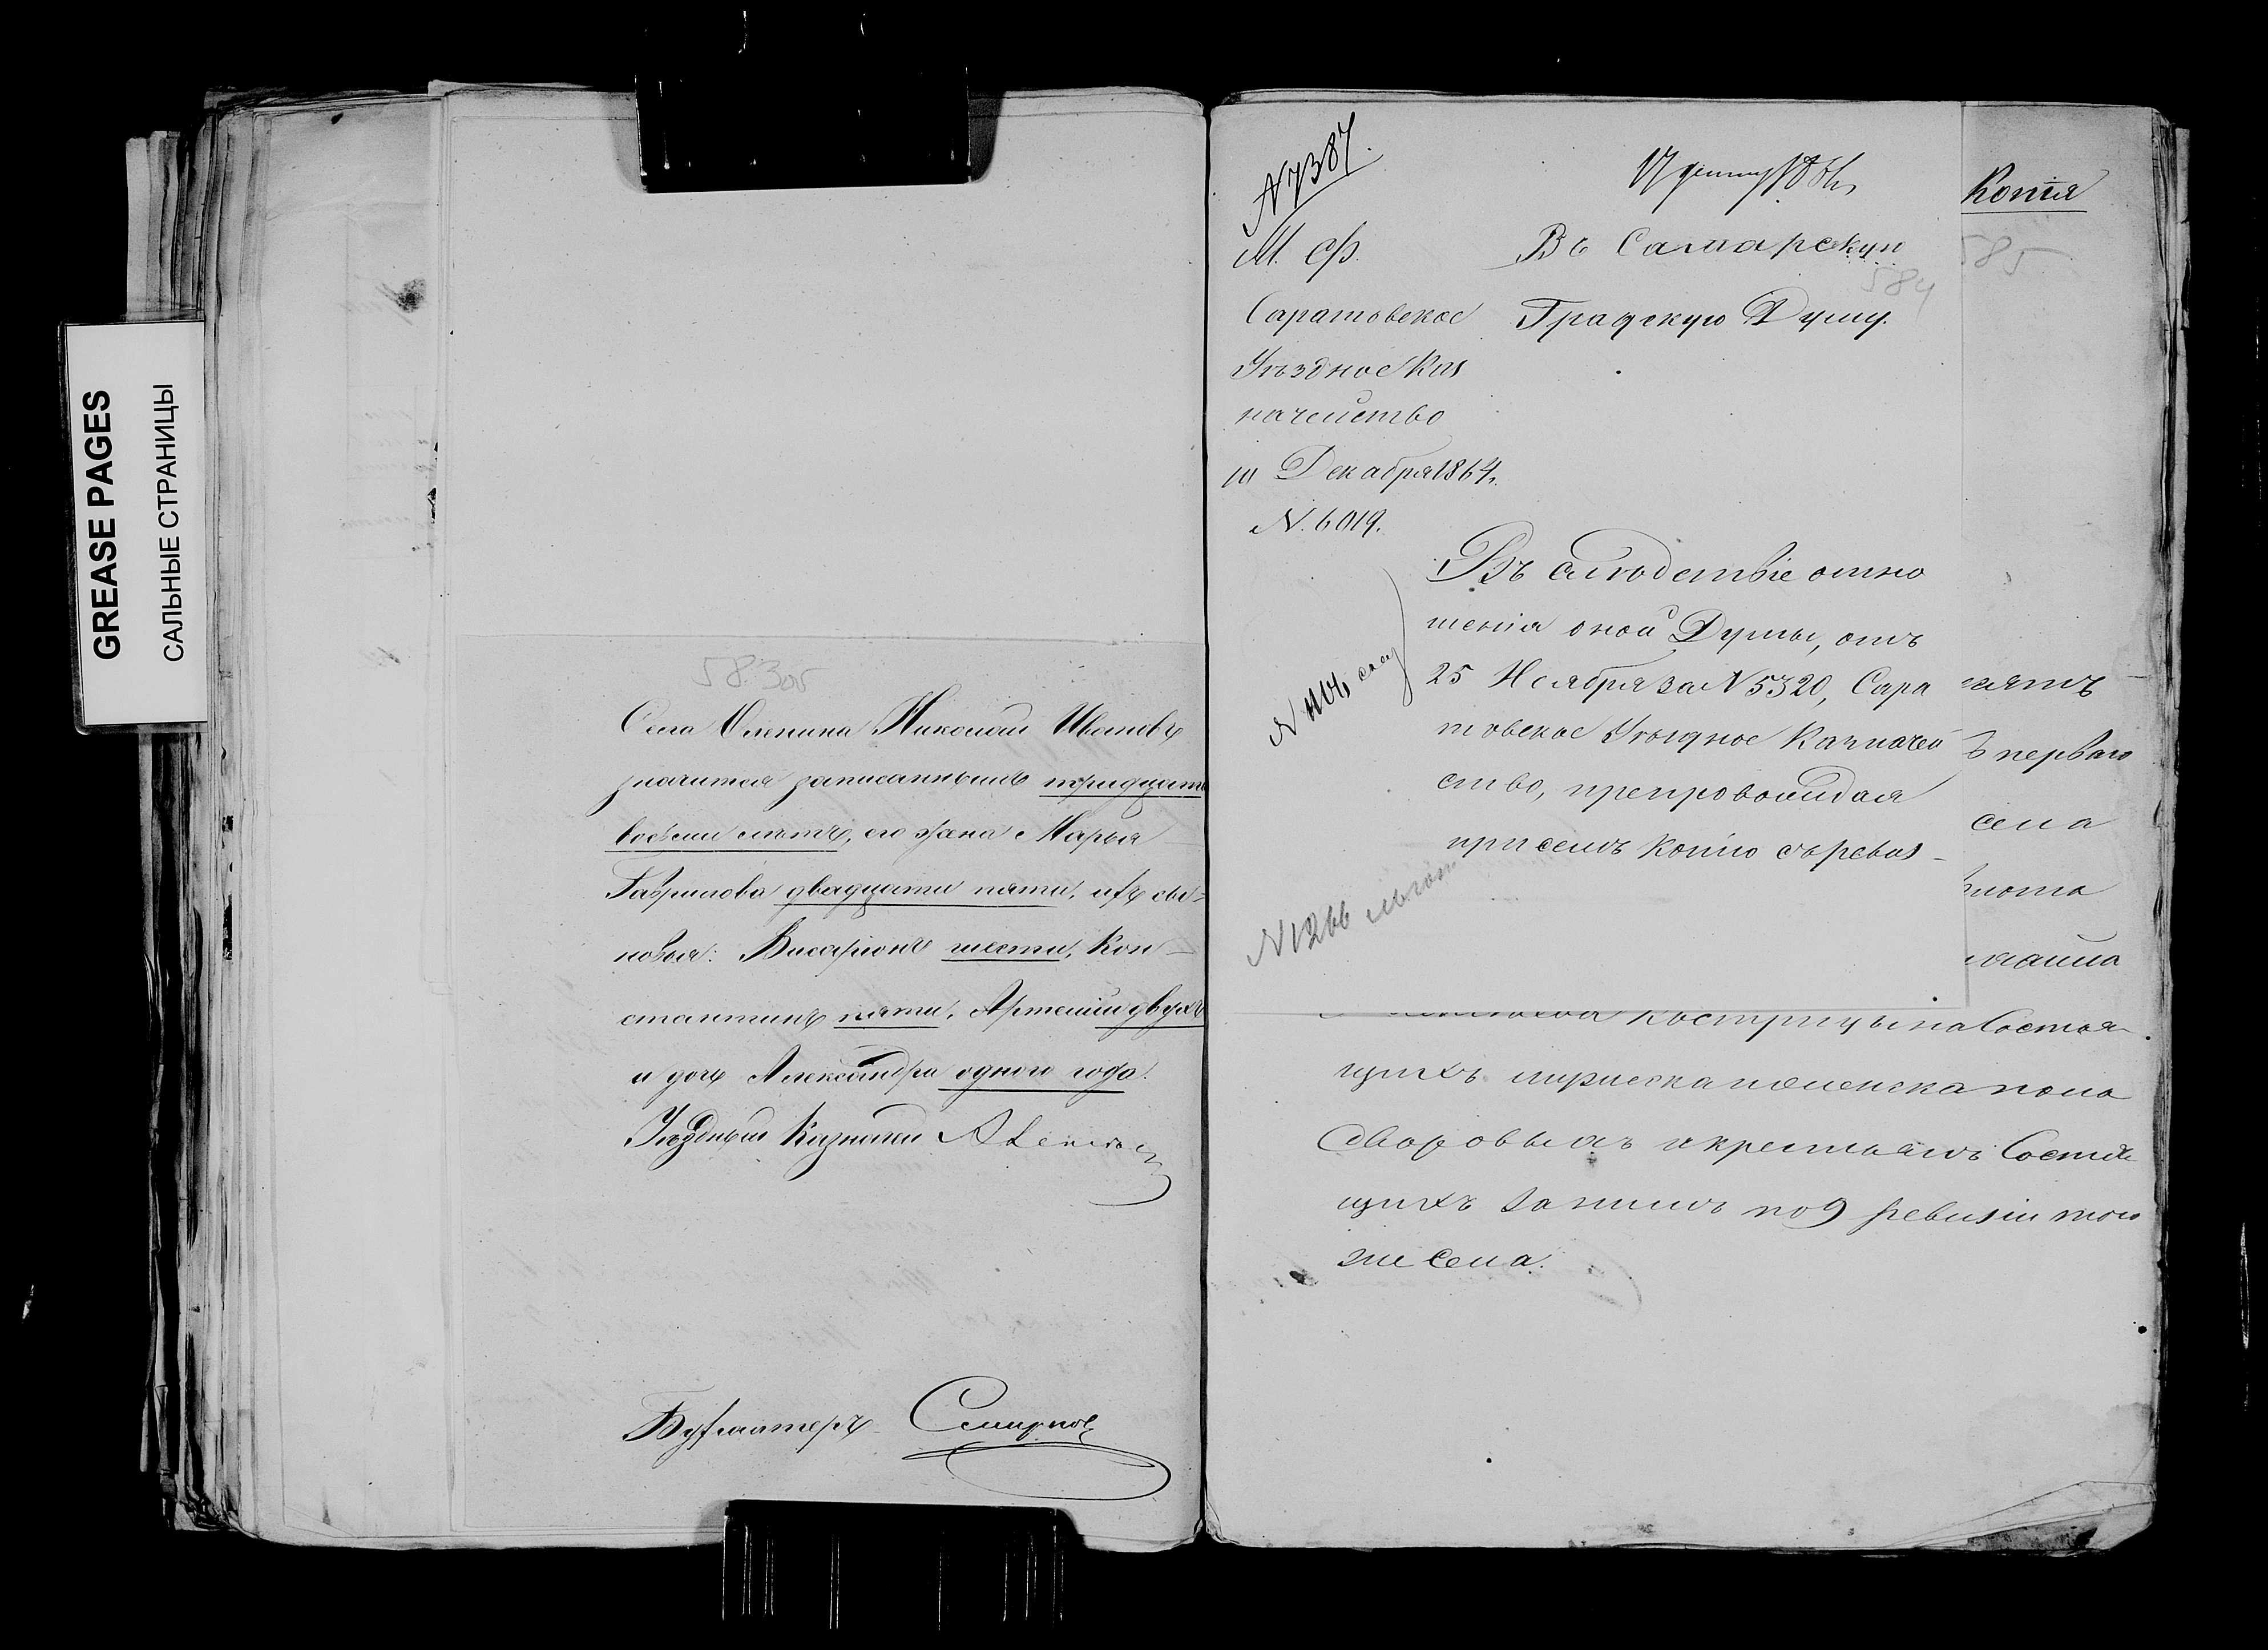 GREASE PAGES
САЛЬНЫЕ СТРАНИЦЫ
583 об
Села Оленина Николай Ивановъ
значится записаннымъ тридцати
восьми лѣтъ, его жена Марья
Гаврилова двадцати пяти, ихъ сы-
новья: Висаріонъ шести, Кон-
стантинъ пяти, Артемій двухъ
и дочь Александра одного года.
Уѣздный Казначей
Бухгалтеръ Смирновъ
N 7387.
М. Ф.
Саратовское
Уѣздное Каз
начейство
10 Декабря 1864 г.
N. 6019.
17 1864
Въ Самарскую
584
Градскую Думу.
Въ слѣдствіе отно
шенія оной Думы, отъ
25 Ноября за N 5320, Сара
товское Уѣздное Казначей
ство, препровождая
при семъ копію съ ревиз-
N 1266
Копія
585
ъ перваго
села
Кострицына Состоя
щихъ
дворовыхъ и крестьянъ Состоя
щихъ за нимъ по 9 ревизіи того
же села.